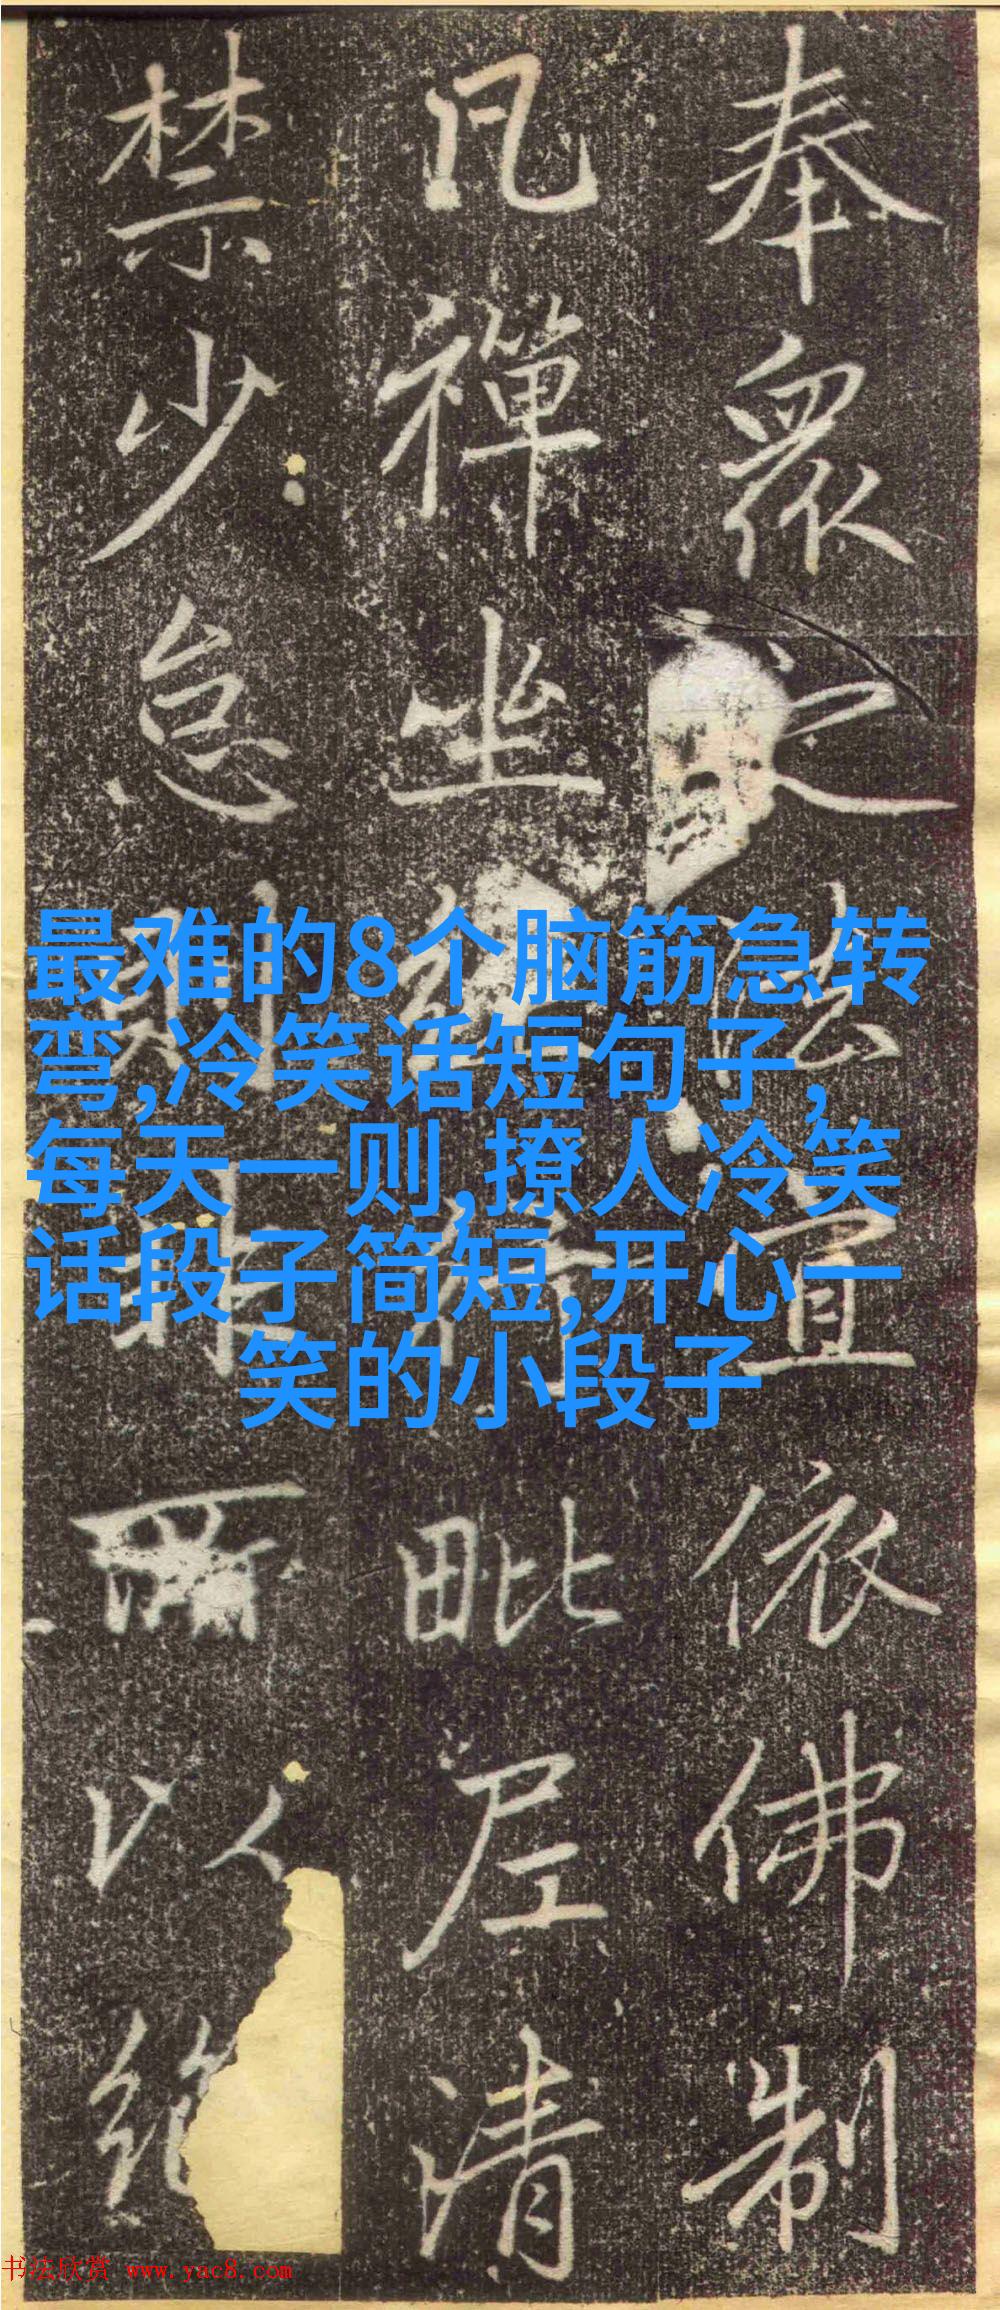 奉眾之法宜依佛制
凡禪坐行毗尼清
禁少怠則非所以紹
最难的8个脑筋急转
弯,冷笑话短句子,
每天一则,撩人冷笑
话段子简短,开心一
笑的小段子
书法欣赏 www.yac8.com